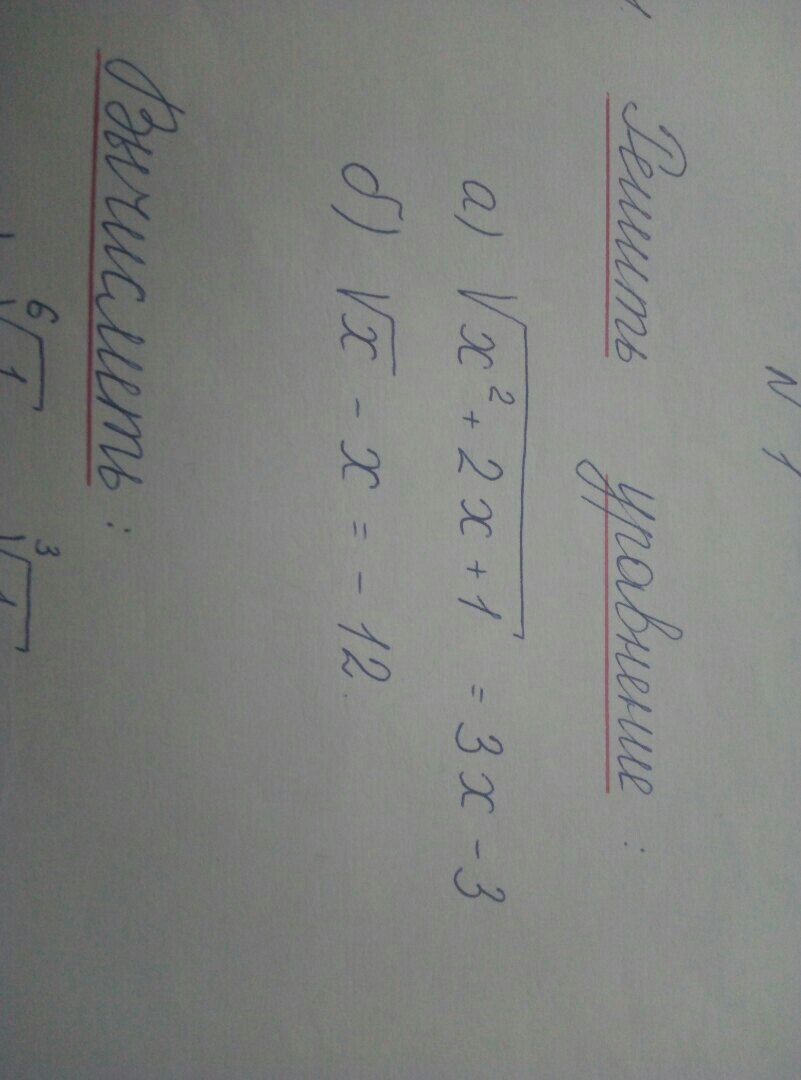 N 1
Решить уравнение :
а) √x² + 2x + 1 = 3x - 3
б) √x - x = - 12.
Вычислить :
⁶√1 ³√1